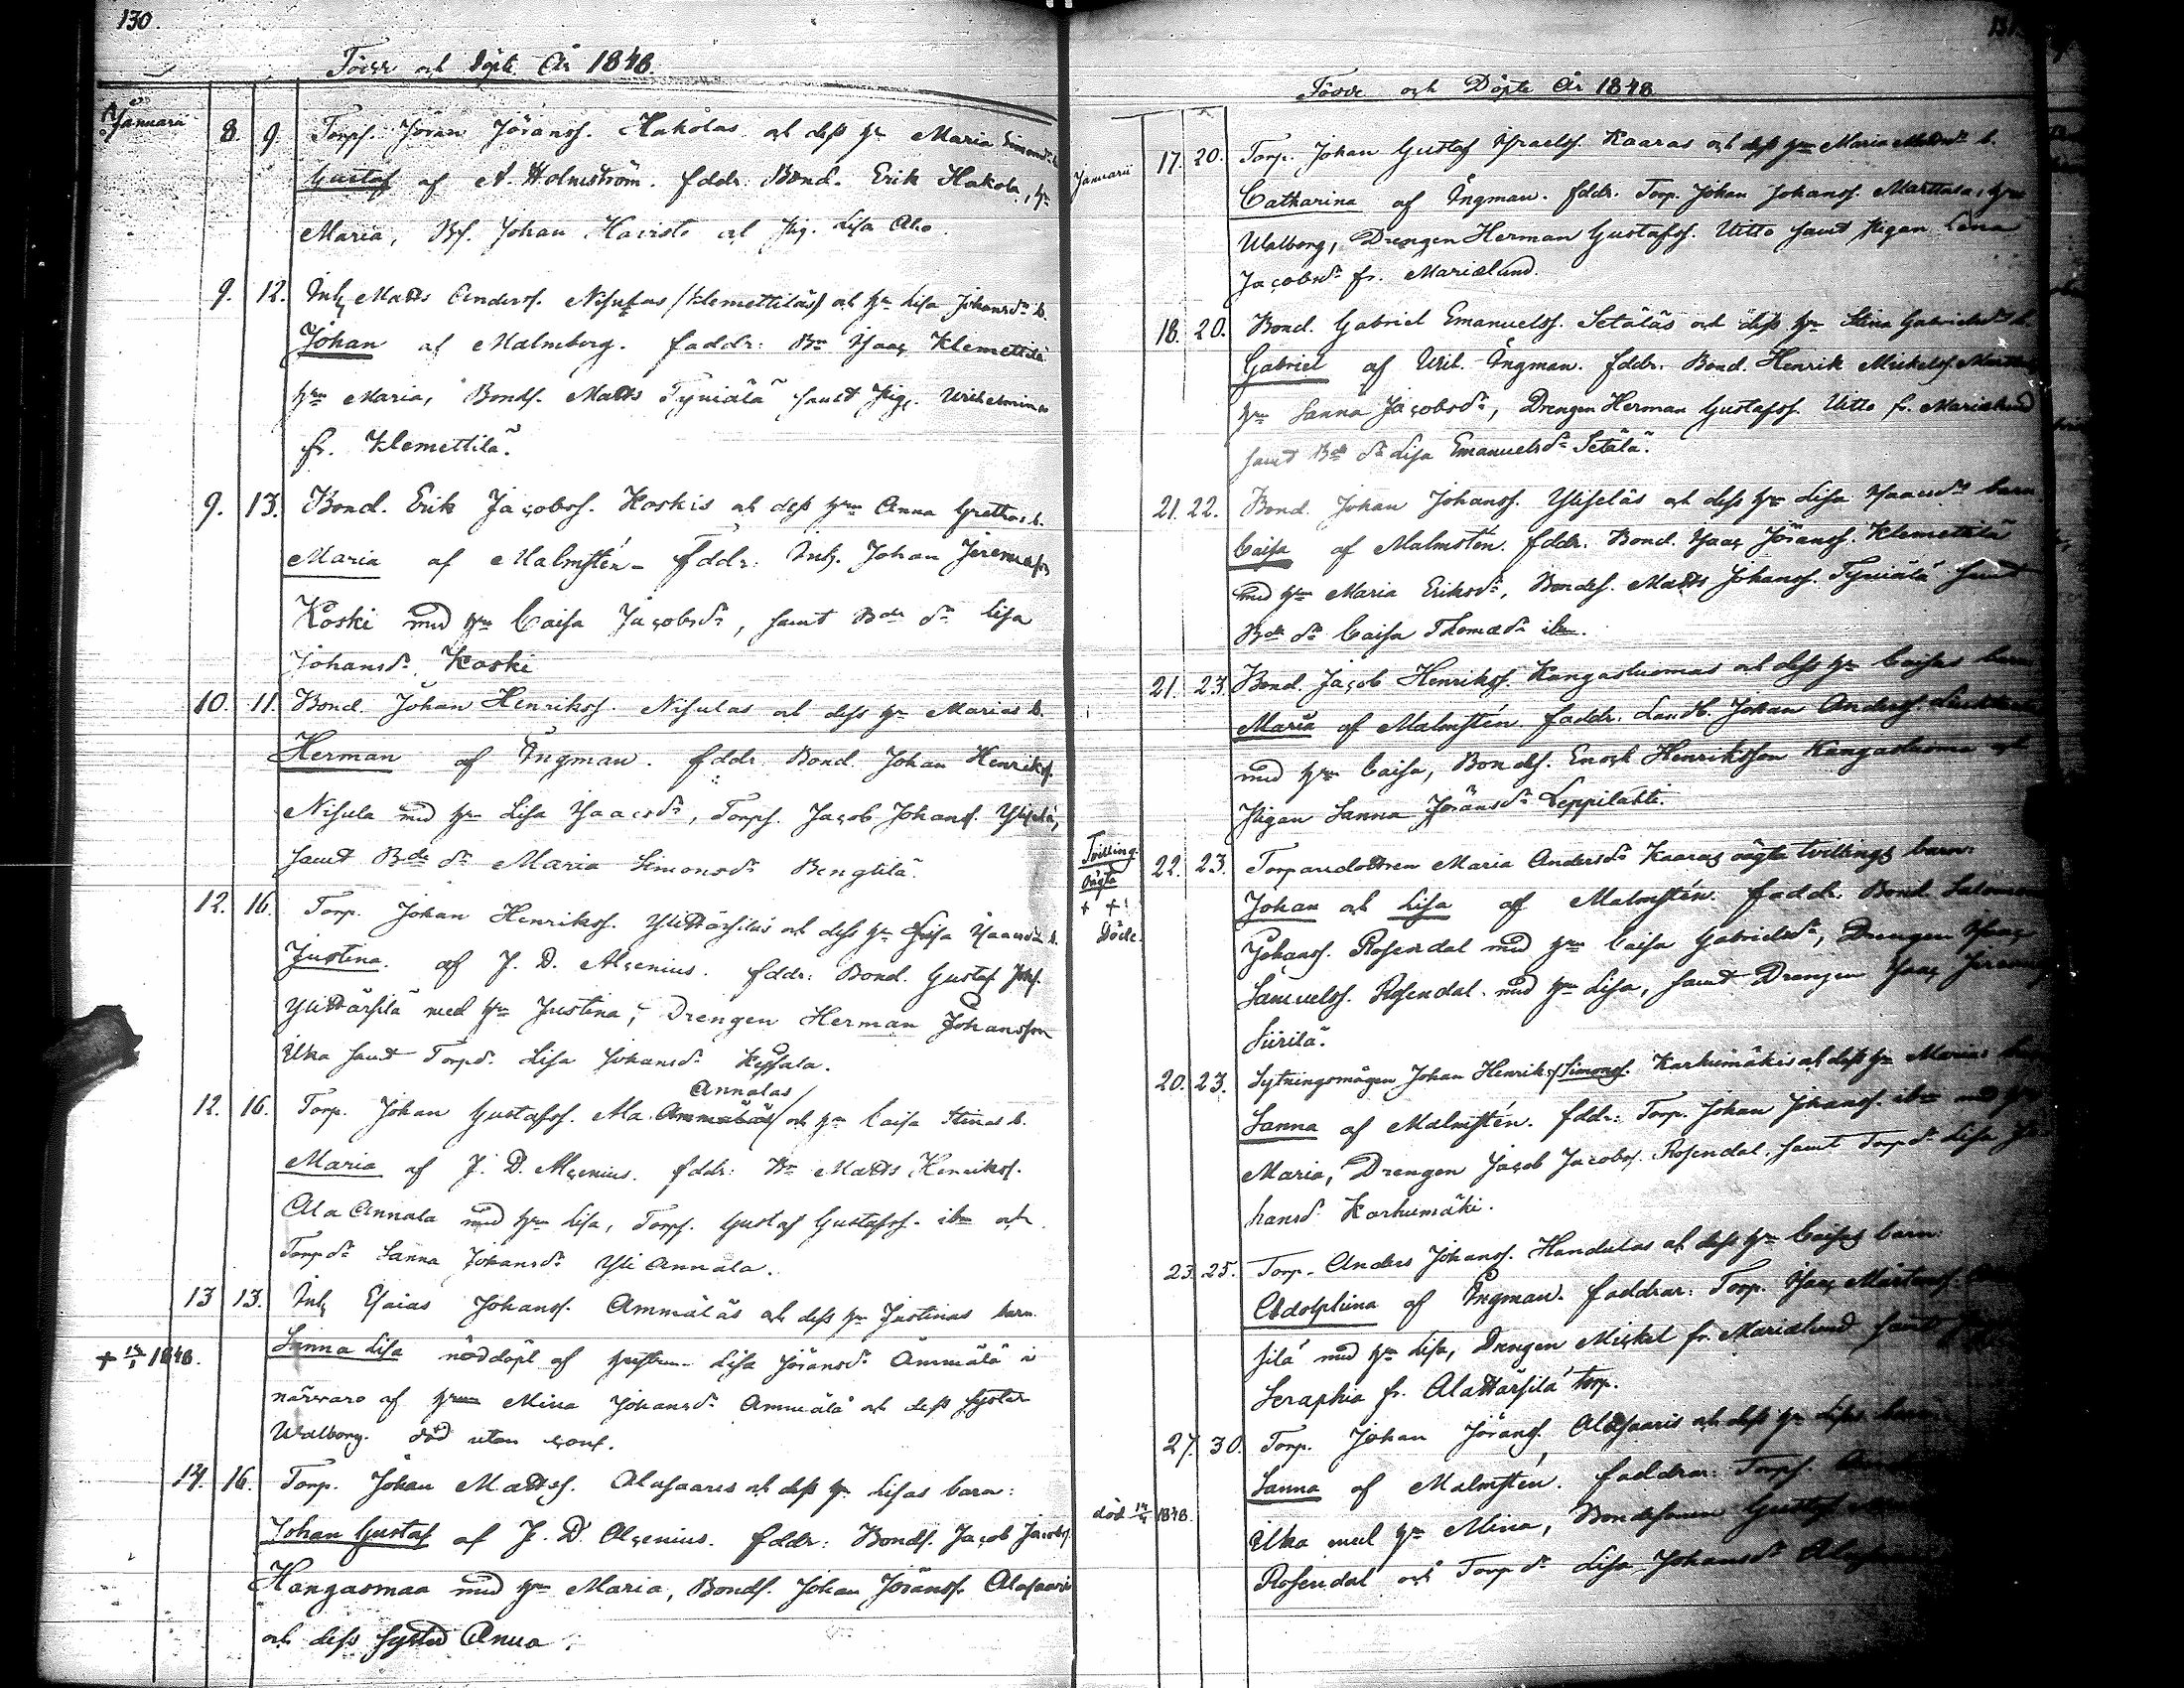 130.
Födde och Döpte År 1848.
Januarii 8. 9. Torps. Jöran Jöranss. Hakolas och dess hu Maria Simonsdr b.
Gustaf af A. Holmström. fddr: Bond. Erik Hakola, hu
Maria, Bs. Johan Havisto och Pig. Lisa Aho.
9. 12. Inh. Matts Anderss. Nisulas (Klemettiläs) och hu Lisa Johansdr b.
Johan af Malmberg. faddr: Bn Isaac Klemettilä
hru Maria, Bonds. Matts Tyniälä samt Pig. Wilhelmina
fr. Klemettilä.
9. 13. Bond. Erik Jacobss. Koskis och dess hru Anna Grethas b.
Maria af Malmstén. fddr: Inh. Johan Jeremias.
Koski med hru Caisa Jacobsdr, samt Bde dr Lisa
Johansdr Koski
10. 11. Bond. Johan Henrikss. Nisulas och dess hu Marias b.
Herman af Ingman. fddr. Bond. Johan Henrikss.
Nisula med hru Lisa Isaacsdr, Torps. Jacob Johanss. Yliselä,
samt Bde dr Maria Simonsdr Bengtilä.
12. 16. Torp. Johan Henrikss. YliKärsiläs och dess hu Lisa Isaacsdr b.
Justina. af J. D. Alcenius. fddr: Bond. Gustaf Johs.
YliKärsilä med hu Justina, Drengen Herman Johansson
Ilka samt Torpdr Lisa Johansdr Kessala.
Annalas
12. 16. Torp. Johan Gustafss. Ala Ammäläs och hu Caisa Stinas b.
Maria af J. D. Alcenius. fddr: Bn Matts Henrikss.
Ala Annala med hru Lisa, Torps. Gustaf Gustafss. ibm och
Torpdr Sanna Johansdr Yli Annala.
13 13. Inh Esaias Johanss. Ammäläs och dess hu Justinas barn
+ 14/1 1848. Sanna Lisa nöddöpt af hustrun Lisa Jöransdr Ammälä i
närvaro af hrun Mina Johansdr Ammälä och dess syster
Walborg. död utan conf.
14. 16. Torp. Johan Mattss. Alasaaris och dess hu Lisas barn:
Johan Gustaf af J. D. Alcenius. fddr: Bonds. Jacob Jacobs.
Hangasmaa med hru Maria, Bonds. Johan Jöranss. Alasaari
och dess syster Anna.
131.
Födde och Döpte År 1848
Januarii 17. 20. Torp. Johan Gustaf Israelss. Kaaras och dess hru Maria Mattsdr b.
Catharina af Ingman. fddr. Torp. Johan Johanss. Marttala, hru
Walborg, Drengen Herman Gustafss. Uitto samt Pigan Lena
Jacobsdr fr. Marielund.
18. 20. Bond. Gabriel Emanuelss. Setäläs och dess hu Stina Gabrielsdr b.
Gabriel af Wil. Ingman. fddr. Bond. Henrik Mickelss.
hu Sanna Jacobsdr, Drengen Herman Gustafss. Uitto fr. Marielund
samt Bde dr Lisa Emanuelsdr Setälä.
21. 22. Bond. Johan Johanss. Yliseläs och dess hu Lisa Isaacsdr barn
Caisa af Malmstén. fddr. Bond. Isaac Jöranss. Klemettilä
med hru Maria Eriksdr, Bondes. Matts Johanss. Tyniälä samt
Bde dr Caisa Thomædr ibm.
21. 23. Bond. Jacob Henrikss. Kangasluomas och dess hu Caisas barn
Maria af Malmstén. faddr. Landb. Johan Anderss.
med hru Caisa, Bondes. Enoch Henriksson Kangasluoma och
Pigan Sanna Jöransdr Leppilahti.
Tvilling.
oägta
+ +!
Döde.
22. 23. Torparedottren Maria Andersdr Kaaras oägta tvillings barn:
Johan och Lisa af Malmstén. faddr. Bond. Salomon
Johanss. Rosendal med hru Caisa Gabrielsdr, Drengen Isaac
Samuelss. Rosendal med hru Lisa, samt Drengen Isaac
Siirilä.
20. 23. Sytningsmågen Johan Henrikss. Simonss. Karhumäkis och dess hu Marias barn
Sanna af Malmstén. fddr: Torp. Johan Johanss. ibm med hru
Maria, Drengen Jacob Jacobss. Rosendal, samt Torpdr Lisa Jo-
hansdr Karhumäki.
23. 25. Torp. Anders Johanss. Handulas och dess hru Caisas barn:
Adolphina af Ingman. Faddrar: Torp. Isaac Mårtenss.
silä med hu Lisa, Drengen Mickel fr. Marielund samt
Seraphia fr. AlaKärsilä torp.
27. 30. Torp. Johan Jöranss. Alasaaris och dess hu Lisas barn
Sanna af Malmstén. Faddrar: Torps.
död 1848. Ilka med hu Mina, Bondesonen Gustaf
Rosendal och Torpdr Lisa Johansdr